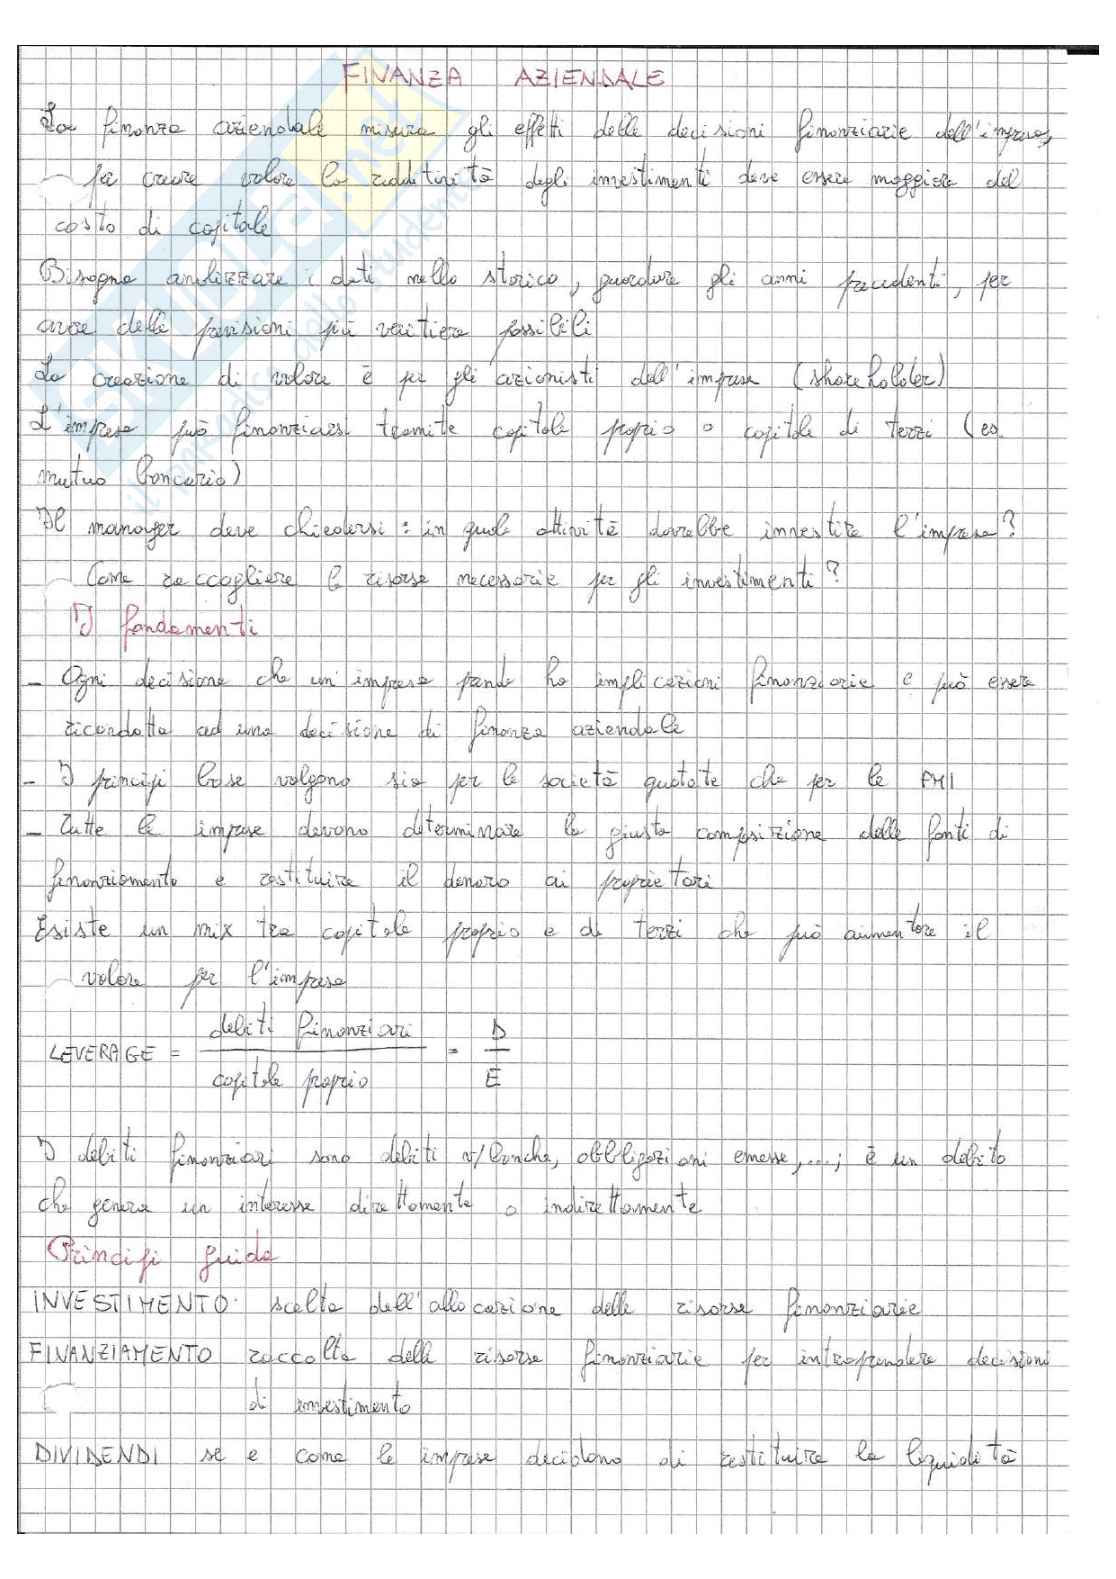 FINANZA AZIENDALE
La finanza aziendale misura gli effetti delle decisioni finanziarie dell'impresa,
per creare valore la redditività degli investimenti deve essere maggiore del
costo di capitale
Bisogna analizzare i dati nello storico, guardare gli anni precedenti, per
avere delle previsioni più veritiere possibili
La creazione di valore è per gli azionisti dell'impresa (shareholder)
L'impresa può finanziarsi tramite capitale proprio o capitale di terzi (es.
mutuo bancario)
Il manager deve chiedersi: in quale attività dovrebbe investire l'impresa?
Come raccogliere le risorse necessarie per gli investimenti?
I fondamenti
- Ogni decisione che un'impresa prende ha implicazioni finanziarie e può essere
ricondotta ad una decisione di finanza aziendale
- I principi base valgono sia per le società quotate che per le PMI
- Tutte le imprese devono determinare la giusta composizione delle fonti di
finanziamento e restituire il denaro ai proprietari
Esiste un mix tra capitale proprio e di terzi che può aumentare il
valore per l'impresa
LEVERAGE = debiti finanziari / capitale proprio = D / E
I debiti finanziari sono debiti v/banche, obbligazioni emesse,...; è un debito
che genera un interesse direttamente o indirettamente
Principi guida
INVESTIMENTO: scelta dell'allocazione delle risorse finanziarie
FINANZIAMENTO raccolta delle risorse finanziarie per intraprendere decisioni
di investimento
DIVIDENDI se e come le imprese decidono di restituire la liquidità
SKUOLA.net
il paradiso dello studente